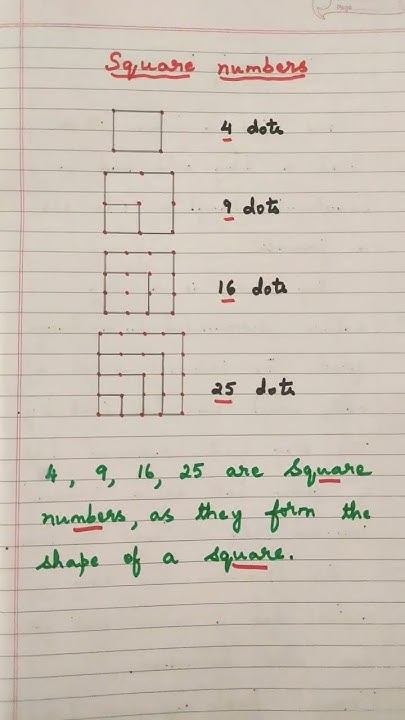 Page
Square numbers
4 dots
9 dots
16 dots
25 dots
4, 9, 16, 25 are square
numbers, as they form the
shape of a square.